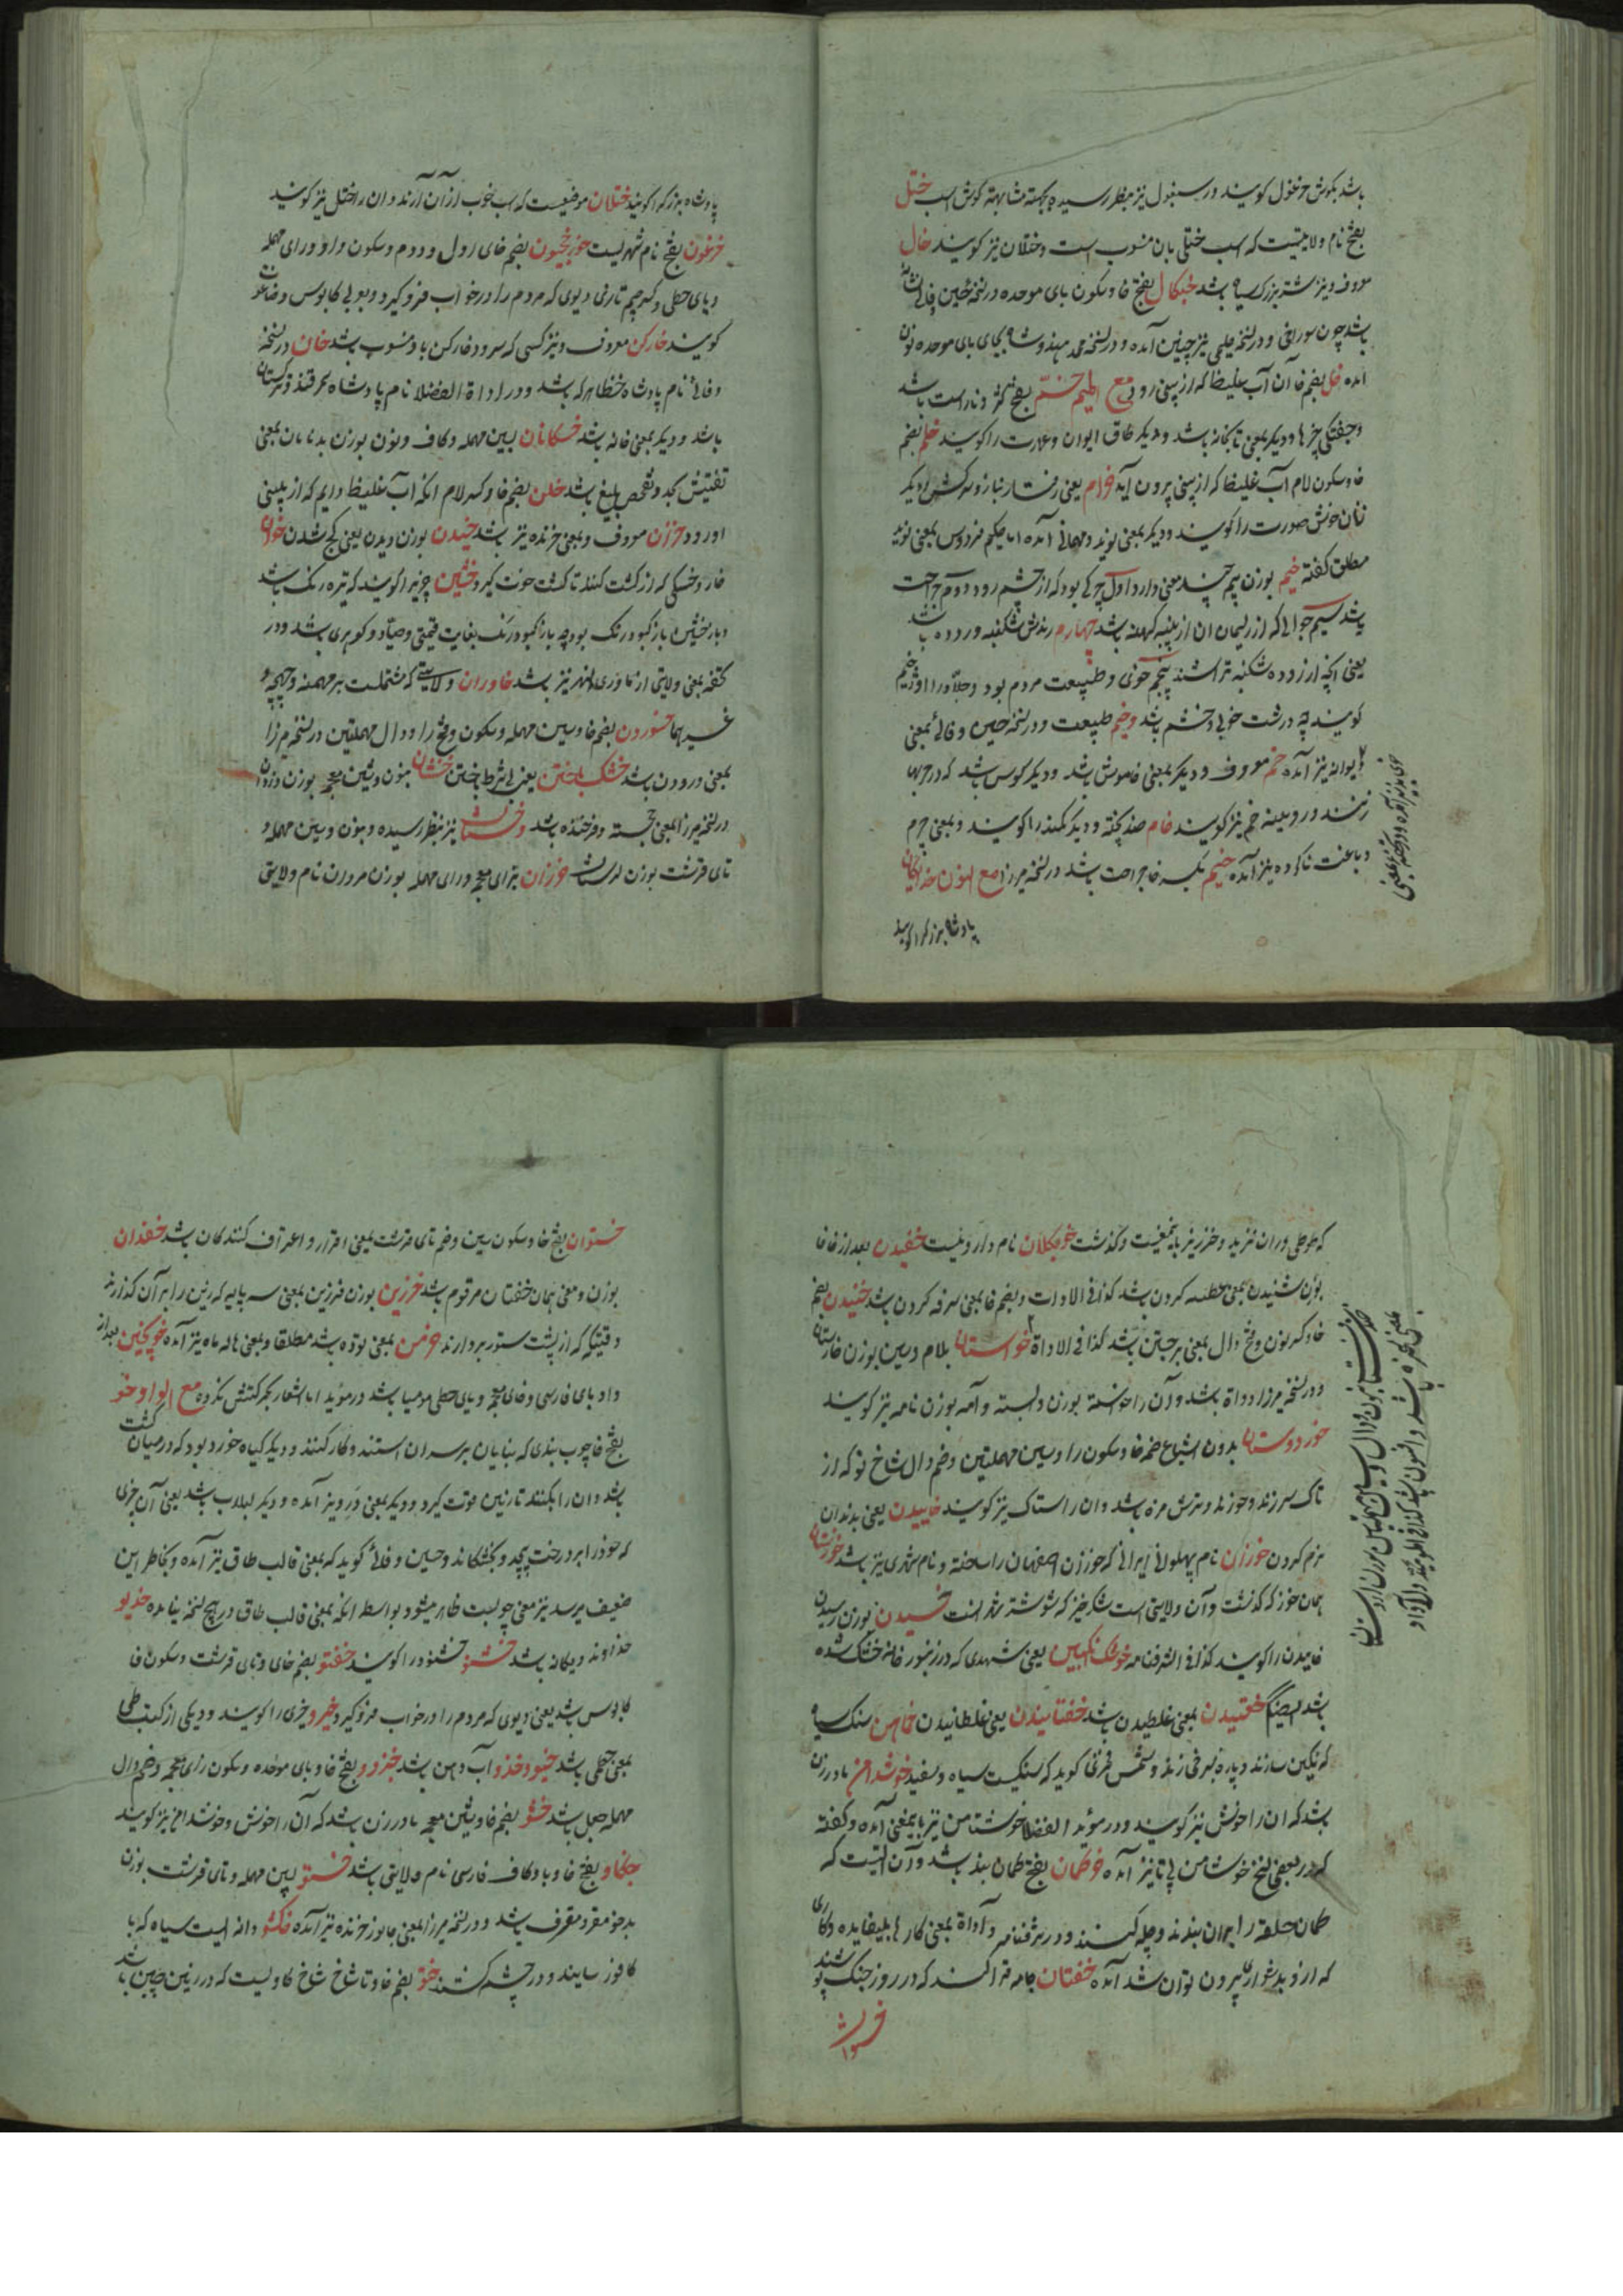 باشد بکوش خرغول کویند و در سبغول نیز بنظر رسیده بجهته مشابهته کوش اسب ختل
بفتح نام ولایتیست که اسب ختلی بان منسوب است و ختلان نیز کویند خال
معروف و نیز شتر بزرک سیاه باشد خبکال بفتح خا و سکون بای موحده در نسخه حسین وفائی نشانه
باشد چون سوراخی و در نسخه حلیمی نیز چنین آمده و در نسخه محمد هندوشاه بجای بای موحده نون
آمده خل بضم خا آن آب غلیظ که از بینی رود مع المیم ختم بفتح کژ و ناراست باشد
و جفتکی چیزها و دیکر بمعنی تابخانه باشد و دیکر طاق ایوان و عمارت را کویند خلم بضم
خا و سکون لام آب غلیظ که از بینی بیرون آید خرام یعنی رفتار بناز و سرکش و دیکر
زنان خوش صورت را کویند و دیکر بمعنی نوید و مهمانی آمده اما حکیم فردوسی بمعنی نوید
مطلق کفته خیم بوزن بیم چند معنی دارد اول چرکی بود که از چشم رود دوم جراحت
باشد سیم جوالی که از ریسمان ان از پنبه کهنه باشد چهارم رندش شکنبه و روده باشد
یعنی آنچه از روده و شکنبه تراشند پنجم خوی و طبیعت مردم بود
کویند چه درشت خوی دخشم باشد وخیم طبیعت و در نسخه حسین وفائی بمعنی
دیوانه نیز آمده خم معروف و دیکر بمعنی خاموش باشد و دیکر کوس باشد که در حربها
زنند و رویینه خم نیز کویند خام ضد پخته و دیکر کمند را کویند و بمعنی چرم
دباغت ناکرده نیز آمده خیم بکسر خا جراحت باشد در نسخه میرزا مع النون خدایکان
پادشاه بزرک را کویند
پادشاه بزرک را کویند ختلان موضعیست که اسب خوب از آن آرند و ان را ختل نیز کویند
خرغون بفتح نام شهریست خورخجیون بضم خای اول و دوم و سکون واو و رای مهمله
و یای حطی و کسر جیم تازی دیوی که مردم را در خواب فرو کیرد و بعربی کابوس
کویند خارکن معروف و نیز کسی که سرود خارکن باو منسوب باشد خان در نسخه
وفائی نام پادشاه خطا هر که باشد و در اداة الفضلا نام پادشاه سمرقند و ترکستان
باشد و دیکر بمعنی خانه باشد خسکانان بسین مهمله و کاف و نون بوزن بدنامان بمعنی
تفتیش بجد و تفحص بلیغ باشد خلن بضم خا و کسر لام انکه آب غلیظ دایم که از بینی
او رود خزان معروف و بمعنی خزنده نیز باشد خیدن بوزن دیدن یعنی کج شدن
خار و خسکی که از کشت کنند تا کشت قوت کیرد خشین چیزی را کویند که تیره رنک باشد
و باز خشین باز کبود رنک بود چه باز کبود رنک بغایت قیمتی و صیاد و کوهری باشد و در
کفته بمعنی ولایتی از ماوراء النهر نیز باشد خاوران ولایتی که مشتملست بر مهمنه و
غیرهما خسوردن بضم خا و سین مهمله و سکون و فتح را و دال مهملتین در نسخه میرزا
بمعنی درودن باشد خشک باختن یعنی بی شرط باختن خنشان بنون و شین معجمه بوزن
در نسخه میرزا بمعنی خجسته و فرخنده باشد و خنستان نیز بنظر رسیده و بنون و سین مهمله و
تای قرشت بوزن لرستان خوزان بزای معجمه و رای مهمله بوزن مروزن نام ولایتی
که طوطی در ان خرید و خزر نیز باینمعنیست و کذشت خرفکلان نام داروئیست خفیدن بعد از خا فا
بوزن شنیدن بمعنی عطسه کردن باشد کذا فی الادات و بضم خا بمعنی سرفه کردن باشد خنیدن بضم
خا و کسر نون و فتح دال بمعنی برجستن باشد کذا فی الاداة خواستان بلام و سین بوزن خارستان
و در نسخه میرزا دواة باشد و آن را خوانسته بوزن دانسته و آمه بوزن نامه نیز کویند
خوردوستان بدون اشباع ضمه خا و سکون را و سین مهملتین و ضم دال شاخ نو که از
تاک سر زند و خورند و ترش مزه باشد و ان را ستاک نیز کویند خاییدن یعنی بدندان
نرم کردن خوزان نام پهلوانی ایرانی که خوزان اصفهان را ساخته و نام شهری نیز باشد خوزستان
همان خوز که کذشت و آن ولایتی است شکرخیز که شوشتر شهر آنست خسیدن بوزن رسیدن
خاییدن را کویند کذا فی الشرفنامه خوشک انکبین یعنی شهدی که در زنبور خانه خشک شده
باشد ایضاً خفتیدن بمعنی غلطیدن باشد خفتانیدن یعنی غلطانیدن خماهن سنک سیاه
که نکین سازند و پاره بسرخی زند و شمس فخری کوید که سنکیست سیاه و سفید خوشدامن مادر زن
باشد که ان را خوش نیز کویند و در مؤید الفضلا خوشتامن نیز باینمعنی آمده و کفته
که در بعضی نسخ خوشامن بی تا نیز آمده خوطمان بفتح طمان بند باشد و آن آلتیست که
طمان حلقه را بدان بندند و چله کنند و در شرفنامه و اداة بمعنی کارهای بیفایده و کاری
که ازو بدشواری بیرون توان شد آمده خفتان جامه قزاکند که در روز جنک پوشند
خستوان بفتح خا و سکون سین و ضم تای قرشت بمعنی اقرار و اعتراف کنندکان باشد خفدان
بوزن و معنی همان خفتان مرقوم باشد خرزین بوزن فرزین بمعنی سه پایه که زین را بر آن کذارند
وقتیکه که از پشت ستور بردارند خرمن بمعنی توده باشد مطلقا و بمعنی هاله ماه نیز آمده خوپخین بعد از
واو بای فارسی و خای معجمه و یای حطی مومیا باشد در مؤید اما اشعار بحرکتش نکرده مع الواو خو
بفتح خا چوب بندی که بنایان بر سر ان استند و کار کنند و دیکر کیاه خورد بود که در میان کشت
باشد و ان را بکنند تا زمین قوت کیرد و دیکر بمعنی درو نیز آمده و دیکر لبلاب باشد یعنی آن چیزی
که خود را بر درخت پیچد و بخشکاند و حسین وفائی کوید که بمعنی قالب طاق نیز آمده و بخاطر این
ضعیف میرسد نیز معنی چوبست ظاهر میشود بواسطه انکه بمعنی قالب طاق در هیچ نسخه نیامده خدیو
خداوند و یکانه باشد خشنو خشنود را کویند خفتو بضم خای و تای قرشت و سکون فا
کابوس باشد یعنی دیوی که مردم را در خواب فرو کیرد خیرو خیری را کویند و دیکی از کتب طبی
بمعنی خطمی باشد خیو و خدو آب دهن باشد خبزدو بفتح خا و بای موحده و سکون زای معجمه و ضم دال
مهمله جعل باشد خشو بضم خا و شین معجمه مادر زن باشد که آن را خوش و خوشدامن نیز کویند
خنکاو بفتح خا و با و کاف فارسی نام ولایتی باشد خستو بسین مهمله و تای قرشت بوزن
بدخو مقر و معترف باشد و در نسخه میرزا بمعنی جانور خزنده نیز آمده خکشو دانه ایست سیاه که با
کافور سایند و در چشم کشند ختو بضم خا و تا شاخ شاخ کاویست که در زمین چین باشد